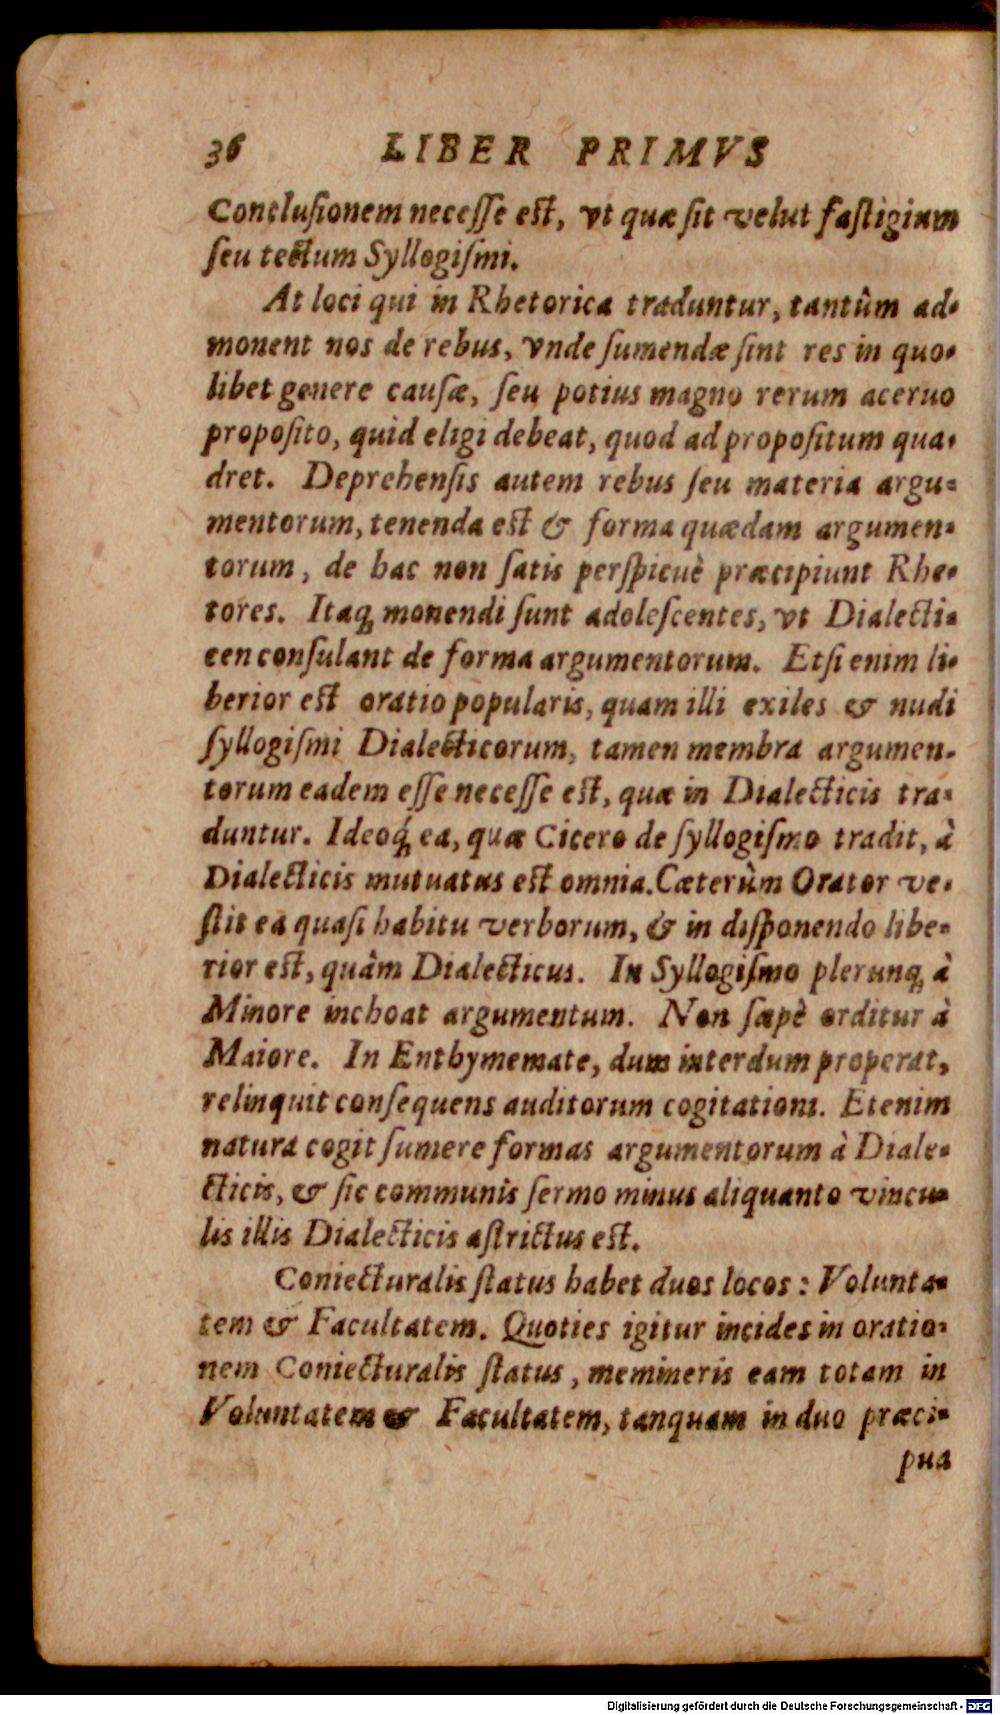 36 LIBER PRIMVS
Concluſionem neceſſe eſt, vt quæ ſit velut faſtigium
ſeu tectum Syllogiſmi.
At loci qui in Rhetorica traduntur, tantûm ad-
monent nos de rebus, vnde ſumendæ ſint res in quo-
libet genere cauſæ, ſeu potius magno rerum aceruo
propoſito, quid eligi debeat, quod ad propoſitum qua-
dret. Deprehenſis autem rebus ſeu materia argu-
mentorum, tenenda eſt & forma quædam argumen-
torum, de hac non ſatis perſpicuè præcipiunt Rhe-
tores. Itaq; monendi ſunt adoleſcentes, vt Dialecti-
cen conſulant de forma argumentorum. Etſi enim li-
berior eſt oratio popularis, quam illi exiles & nudi
ſyllogiſmi Dialecticorum, tamen membra argumen-
torum eadem eſſe neceſſe eſt, quæ in Dialecticis tra-
duntur. Ideoq́; ea, quæ Cicero de ſyllogiſmo tradit, à
Dialecticis mutuatus eſt omnia. Cæterùm Orator ve-
ſtit ea quaſi habitu verborum, & in diſponendo libe-
rior eſt, quâm Dialecticus. In Syllogiſmo plerunq; à
Minore inchoat argumentum. Non ſæpè orditur à
Maiore. In Enthymemate, dum interdum properat,
relinquit conſequens auditorum cogitationi. Etenim
natura cogit ſumere formas argumentorum à Diale-
cticis, & ſic communis ſermo minus aliquanto vincu-
lis illis Dialecticis aſtrictus eſt.
Coniecturalis ſtatus habet duos locos: Volunta-
tem & Facultatem. Quoties igitur incides in oratio-
nem Coniecturalis ſtatus, memineris eam totam in
Voluntatem & Facultatem, tanquam in duo præci-
pua
Digitalisierung gefördert durch die Deutsche Forschungsgemeinschaft - DFG